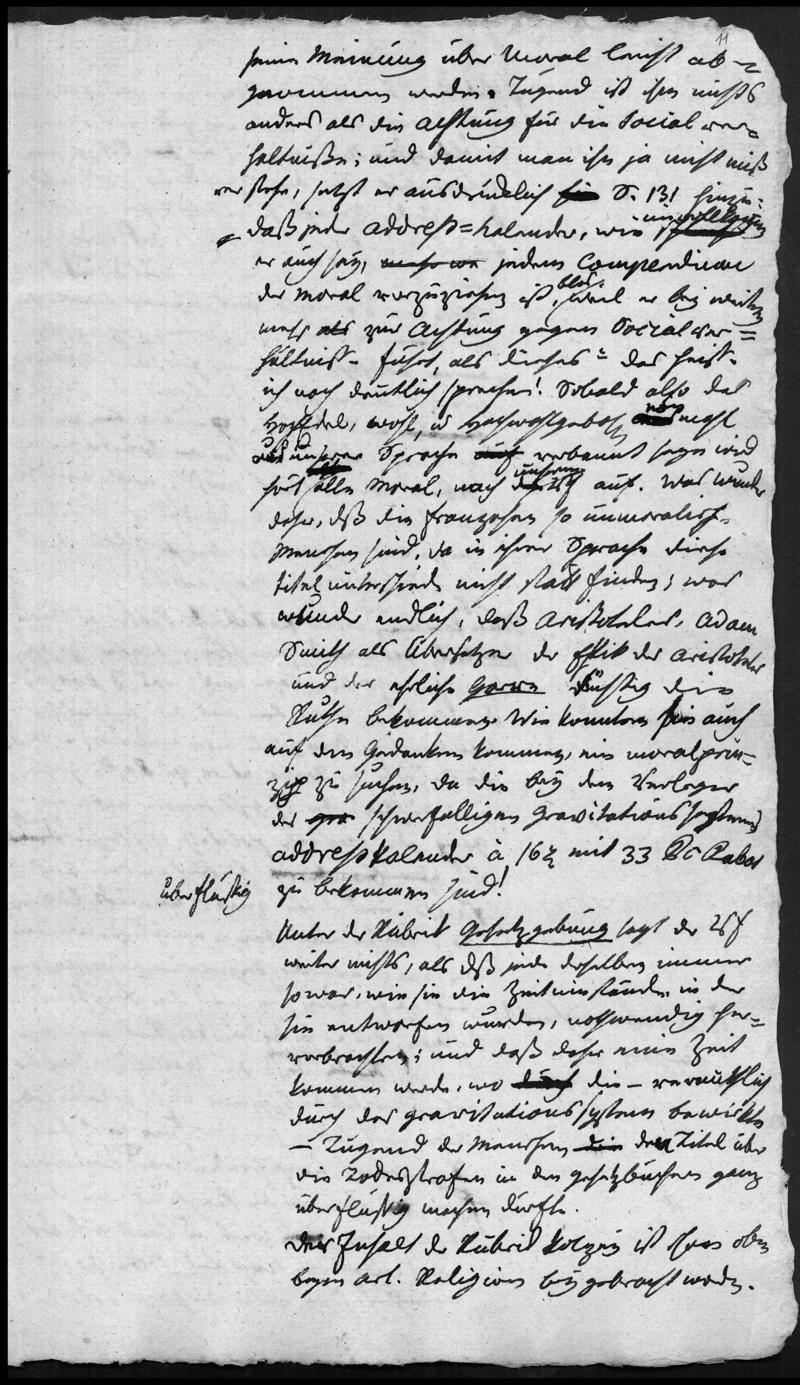 11
seine Meinung über Moral leicht ab-
genommen werden. Tugend ist ihm nichts
anders als die Achtung für die Social ver=
hältniße; und damit man ihn ja nicht miß
verstehe, setzt er ausdrücklich S. 131 hinzu:
daß jeder Address=kalender, wie unvollkommen
er auch sey, jedem Compendium
der Moral vorzuziehen ist, blos, weil er bey weitem
mehr als zur Achtung gegen Socialver=
hältniße führt, als dieses - das heist
ich noch deutlich sprechen! Sobald also das
HochEdel, wohl, u Hochwohlgebohr nicht
aus unserer Sprache verbannt seyn wird
hört alle Moral, nach unserm Vf auf. Was wunder
daher, dß die Franzosen so unmoralische
Menschen sind, da in ihrer Sprache diese
titel unterschiede nicht statt finden; was
wunder endlich, daß Aristoteles, Adam
Smith als Übersetzer der Ethik des Aristoteles
und der ehrliche Garve tüchtig die
Ruthe bekommen. Wie konnten sie auch
auf den Gedanken kommen, ein moralprin-
zip zu suchen, da die bey dem Verleger
des schwerfälligen Gravitationssystems
addreßkalender à 16 mit 33 Rabat
zu bekommen sind!
überflüßig
Unter der Rubrik Gesetzgebung sagt der Vf
weiter nichts, als dß jede derselben immer
so war, wie sie die Zeitumstände, in der
sie entworfen wurden, nothwendig her=
vorbrachten; und daß daher eine Zeit
kommen werde, wo die - vermuthlich
durch das gravitationssystem bewirkte
- Tugend der Menschen den Titel über
die Todesstrafen in den gesetzbüchern ganz
überflüßig machen dürfte.
Der Inhalt der Rubrik Polizey ist schon oben
beym Art. Religion beygebracht worden.